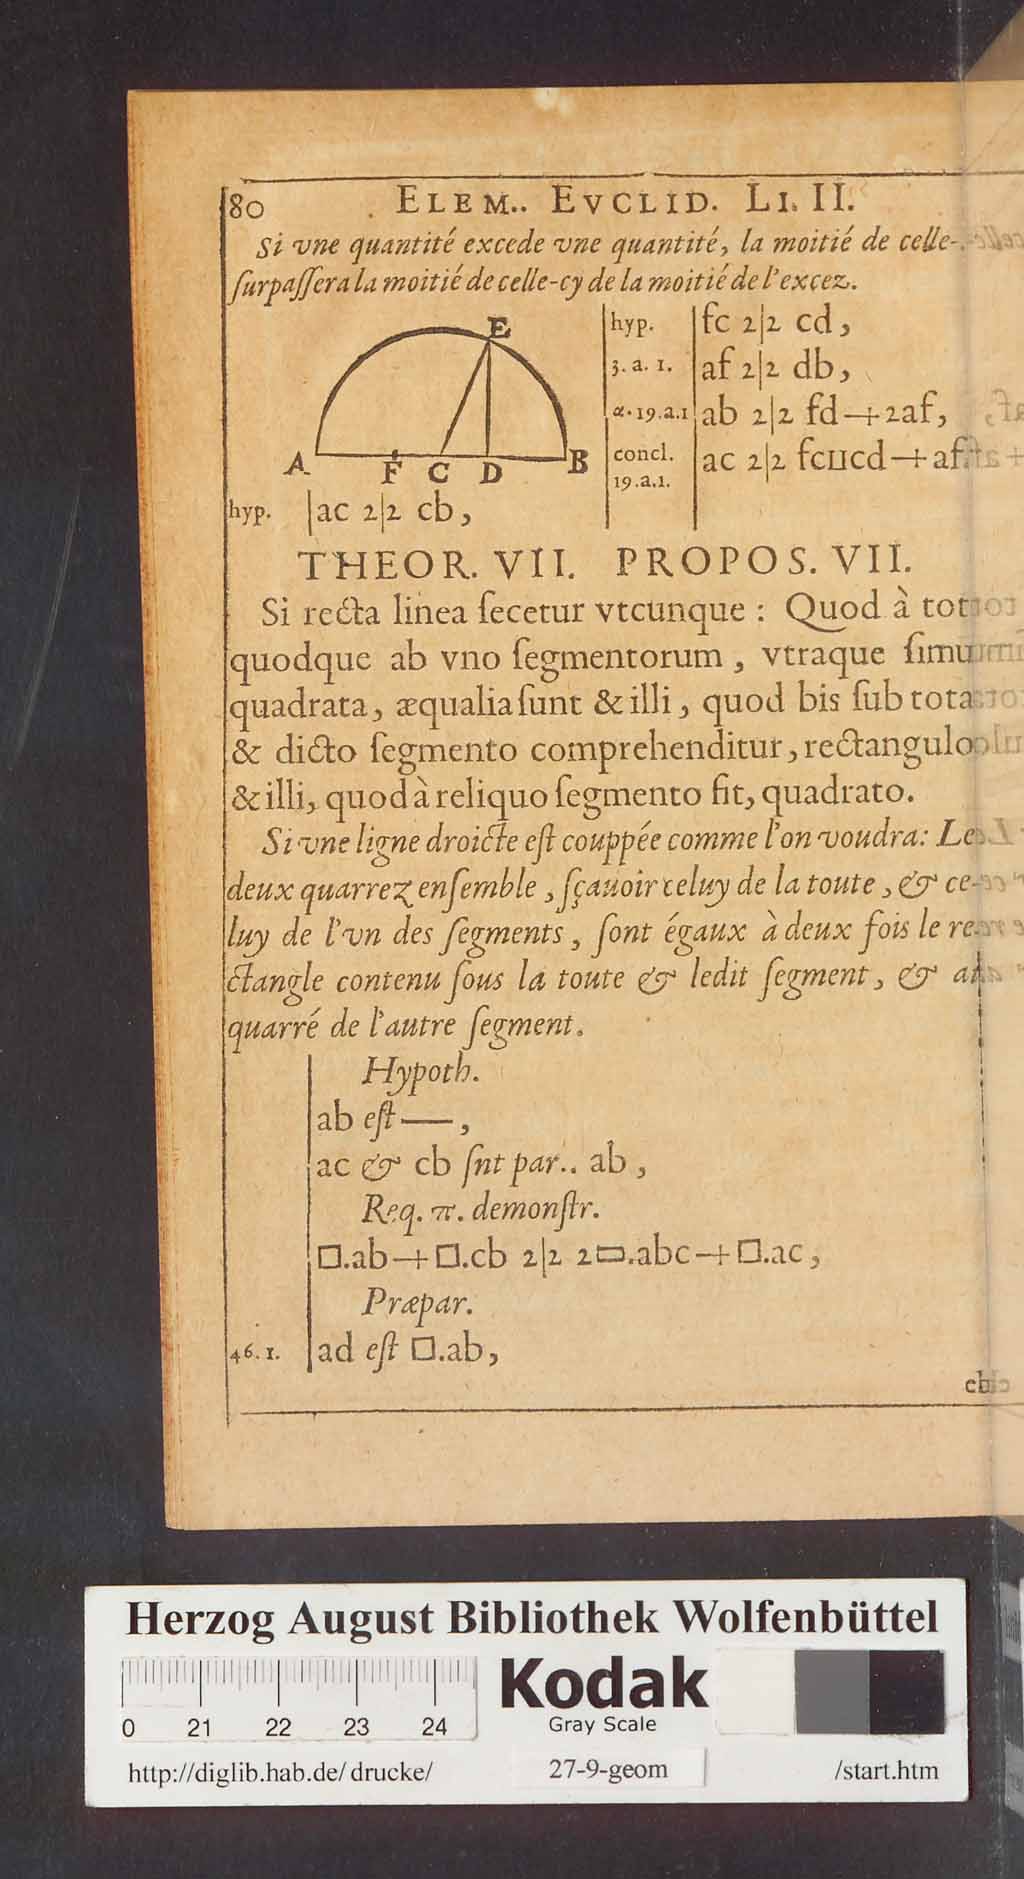 80 ELEM.. EVCLID. LI. II.
Si vne quantité excede vne quantité, la moitié de celle-
ſurpaſſera la moitié de celle-cy de la moitié de l'excez.
E
A F C D B
hyp. fc 2|2 cd,
3. a. 1. af 2|2 db,
α. 19.a.1 ab 2|2 fd+2af,
concl. ac 2|2 fc⊔cd+af
19.a.1.
hyp. ac 2|2 cb,
THEOR. VII. PROPOS. VII.
Si recta linea ſecetur vtcunque : Quod à tot
quodque ab vno ſegmentorum, vtraque ſimu
quadrata, æqualia ſunt & illi, quod bis ſub tota
& dicto ſegmento comprehenditur, rectangulo
& illi, quod à reliquo ſegmento fit, quadrato.
Si vne ligne droicte eſt couppée comme l'on voudra: Le
deux quarrez enſemble, ſçauoir celuy de la toute, & ce-
luy de l'vn des ſegments, ſont égaux à deux fois le re-
ctangle contenu ſous la toute & ledit ſegment, & au
quarré de l'autre ſegment.
Hypoth.
ab eſt —,
ac & cb ſnt par.. ab,
Req. π. demonſtr.
□.ab+□.cb 2|2 2▭.abc+□.ac,
Præpar.
46. 1. ad eſt □.ab,
cb
Herzog August Bibliothek Wolfenbüttel
Kodak
Gray Scale
0 21 22 23 24
http://diglib.hab.de/drucke/ 27-9-geom /start.htm